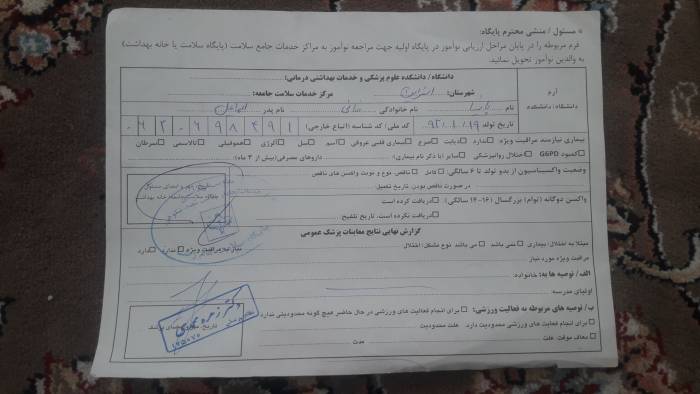 مسئول / منشی محترم پایگاه:
فرم مربوطه را در پایان مراحل ارزیابی نوآموز در پایگاه اولیه جهت مراجعه نوآموز به مراکز خدمات جامع سلامت (پایگاه سلامت یا خانه بهداشت)
به والدین نوآموز تحویل نمائید.
آرم
دانشگاه / دانشکده
دانشگاه / دانشکده علوم پزشکی و خدمات بهداشتی درمانی:
شهرستان: مرکز خدمات سلامت جامعه:
نام نام خانوادگی نام پدر
تاریخ تولد کد ملی / کد شناسه (اتباع خارجی)
بیماری نیازمند مراقبت ویژه ندارد دیابت صرع بیماری قلبی عروقی آسم سل آلرژی هموفیلی تالاسمی سرطان
کمبود G6PD اختلال روانپزشکی سایر (با ذکر نام بیماری) داروهای مصرفی (بیش از ۳ ماه):
وضعیت واکسیناسیون از بدو تولد تا ۶ سالگی: کامل ناقص، نوع و نوبت واکسن های ناقص
در صورت ناقص بودن، تاریخ تکمیل
واکسن دوگانه (توأم) بزرگسال (۱۶-۱۴ سالگی): دریافت کرده است
دریافت نکرده است، تاریخ تلقیح
گزارش نهایی نتایج معاینات پزشک عمومی
مبتلا به اختلال / بیماری نمی باشد می باشد نوع مشکل / اختلال نیاز به مراقبت ویژه ندارد دارد
مراقبت ویژه مورد نیاز
الف / توصیه ها به: خانواده:
اولیای مدرسه
ب / توصیه های مربوطه به فعالیت ورزشی: برای انجام فعالیت های ورزشی در حال حاضر هیچ گونه محدودیتی ندارد
برای انجام فعالیت های ورزشی محدودیت دارد علت محدودیت
معاف موقت، علت مدت